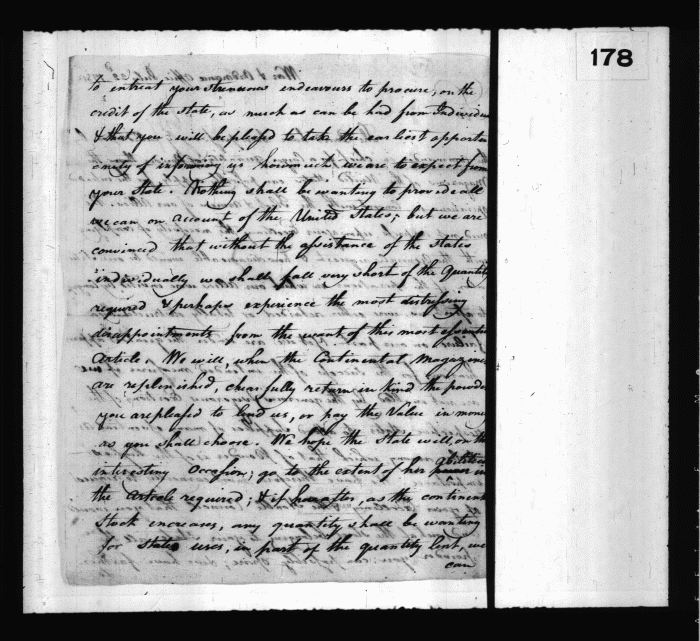 178
to entreat your strenuous endeavours to procure, on the
credit of the state, as much as can be had from Individu
& that you will be pleased to take the earliest opportu
unity of informing us how much we are to expect from
your State. Nothing shall be wanting to provide all
we can on account of the United States; but we are
convinced that without the assistance of the States
individually we shall fall very short of the Quantity
required & perhaps experience the most distressing
disappointments from the want of this most essential
Article. We will, when the Continental Magazines
are replenished, chearfully return in kind the powder
you are pleased to lend us, or pay the Value in money
as you shall choose. We hope the State will, on th
abilities
interesting Occasion, go to the extent of her in
the Article required; & if hereafter, as the continent
Stock increases, any quantity shall be wanting
for State uses, in part of the quantity lent, we
can